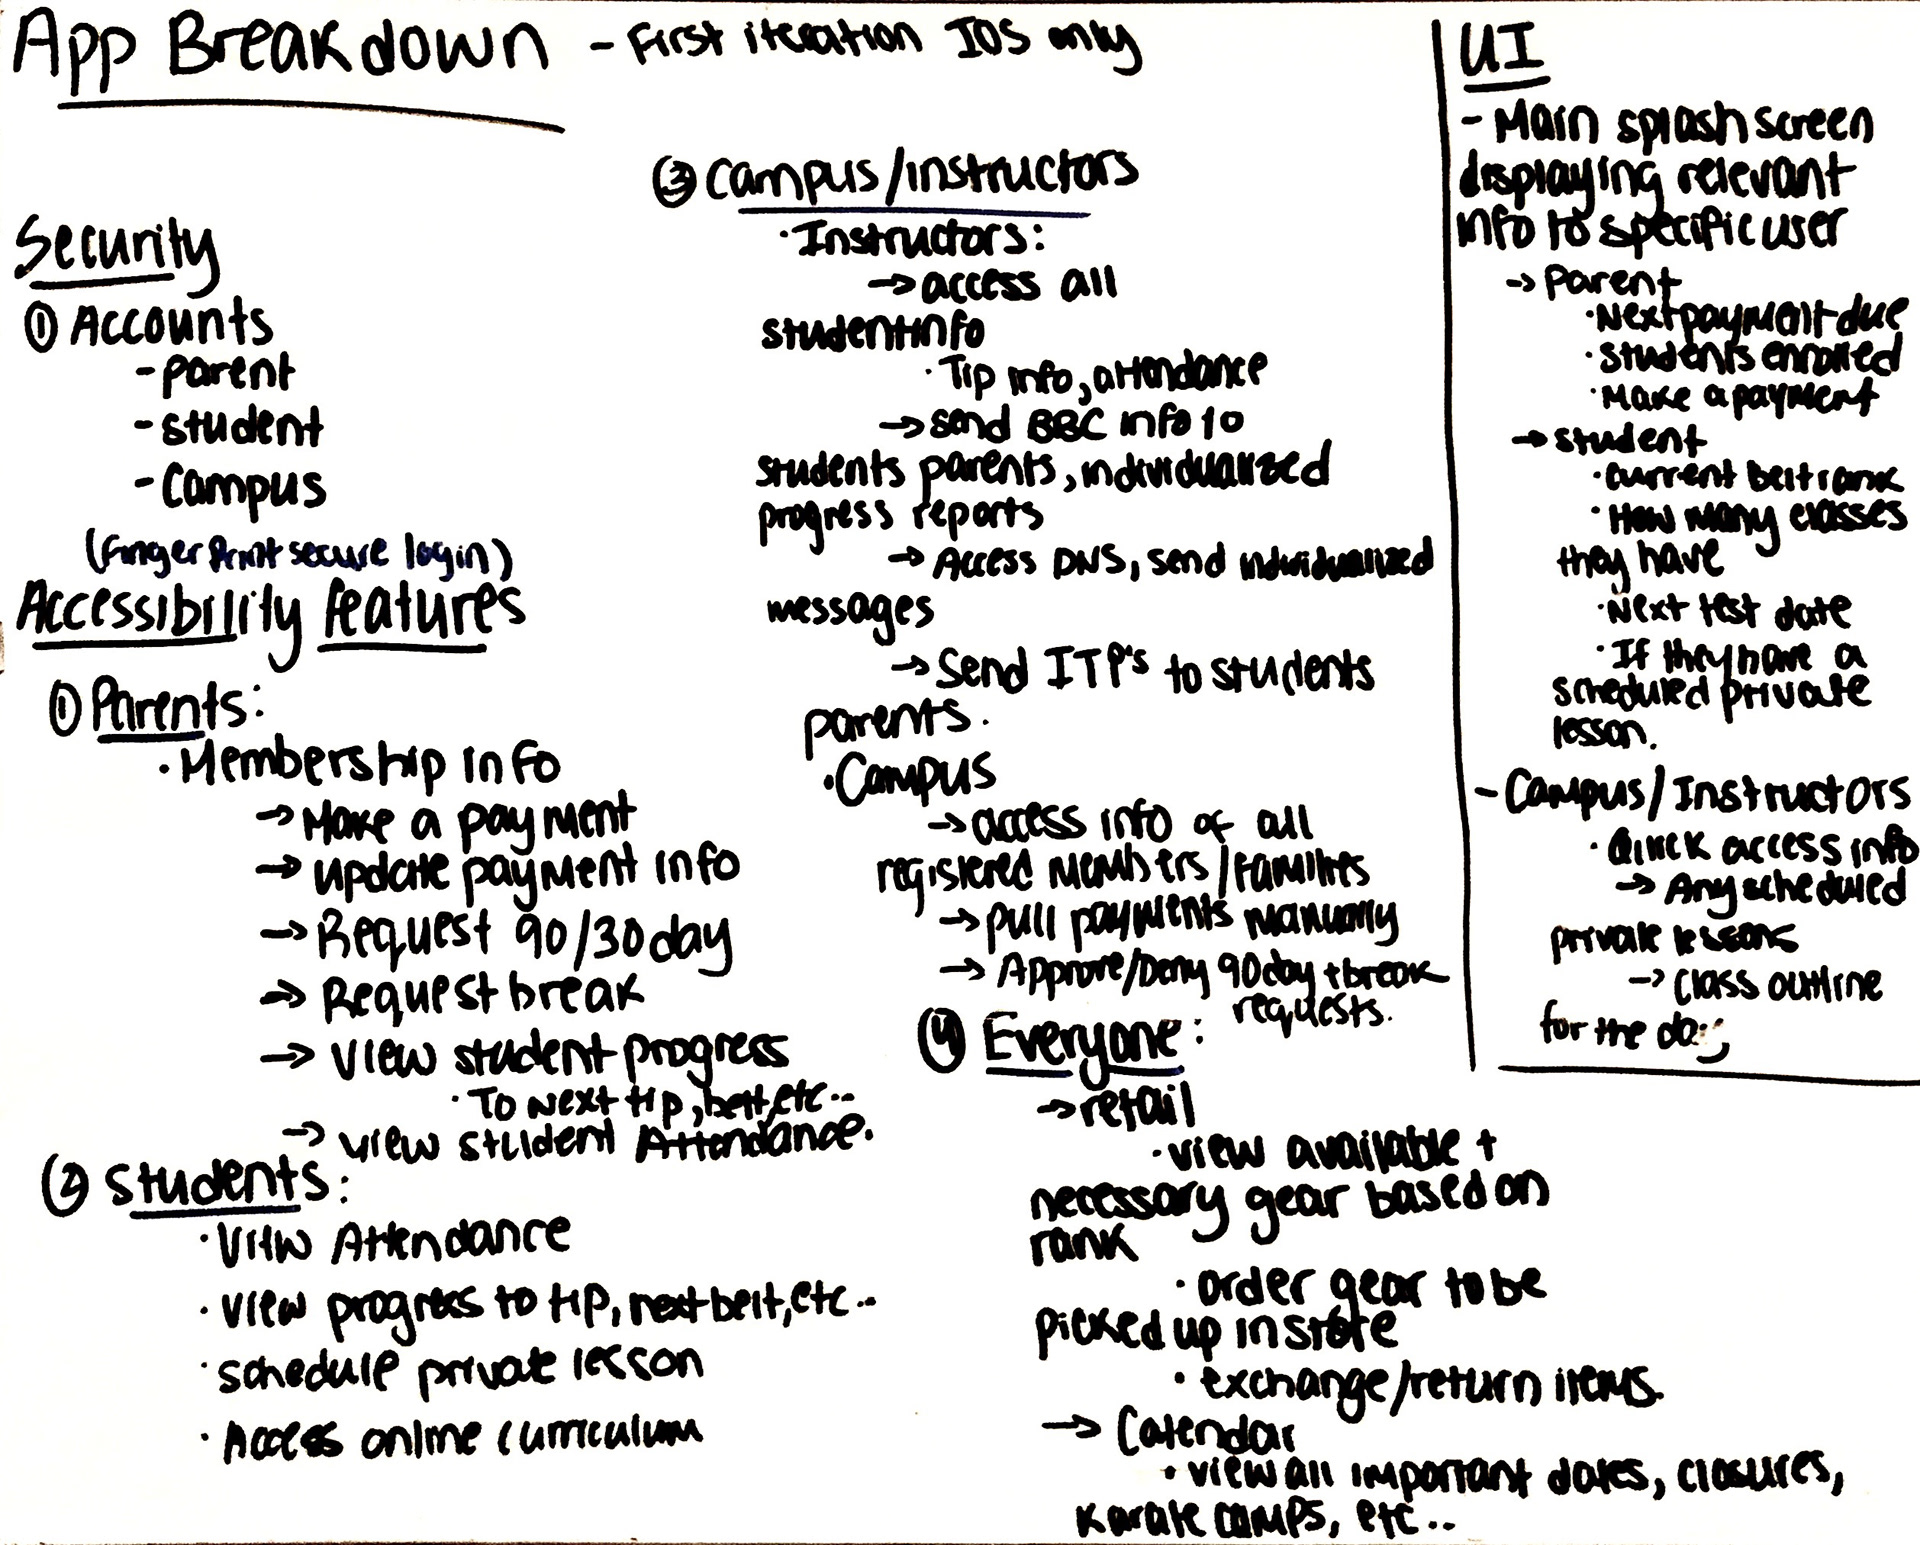 App Breakdown - First iteration IOS only
Security
① Accounts
- parent
- student
- Campus
(Finger Print secure login)
Accessibility features
① Parents:
· Membership info
→ Make a payment
→ update payment info
→ Request 90/30 day
→ Request break
→ View student progress
· To next tip, belt, etc...
→ view student Attendance.
② Students:
· View Attendance
· View progress to tip, next belt, etc...
· schedule private lesson
· Access online curriculum
③ Campus/instructors
· Instructors:
→ access all
student info
· Tip info, attendance
→ send BBC info to
students parents, individualized
progress reports
→ Access DNS, send individualized
messages
→ Send ITP's to students
parents.
· Campus
→ access info of all
registered members/families
→ pull payments manually
→ Approve/Deny 90 day + break
requests.
④ Everyone:
→ retail
· view available +
necessary gear based on
rank
· order gear to be
picked up in store
· exchange/return items.
→ Calendar
· view all important dates, closures,
karate camps, etc...
UI
- Main splash screen
displaying relevant
info to specific user
→ Parent
· Next payment due
· students enrolled
· Make a payment
→ student
· current belt rank
· How many classes
they have
· Next test date
· If they have a
scheduled private
lesson.
- Campus/Instructors
· Quick access info
→ Any scheduled
private lessons
→ Class outline
for the day